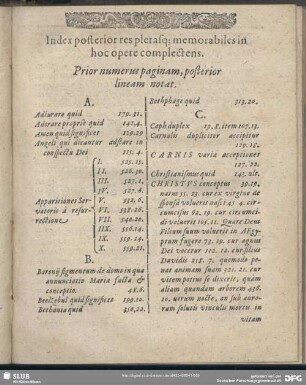 Index posterior res plerasq; memorabiles in
hoc opere complectens.
Prior numerus paginam, posterior
lineam notat.
A.
Adiurare quid 179.21.
Adorare propriè quid 141.4.
Amon quid significet 129.29
Angeli qui dicantur adstare in
conspectu Dei 125.4.
Apparitiones Ser-
vatoris à resur-
rectione
I. 325.15.
II. 326.30.
III. 327.1.
IV. 327.6.
V. 332.6.
VI. 335.15.
VII.
IIX. 358.14.
IX. 359.14.
X. 359.22.
B.
Berenij figmentum de domo in qua
annunciatio Mariæ facta &
conceptio. 48.8.
Beelzebul quid significet 199.10.
Bethania quid 350.22.
Bethphage quid 313.20.
C.
Caph duplex 15.8. item 107.13.
Carnalis dupliciter accipitur
129.12.
CARNIS varia acceptiones
127.22.
Christianismus quid 143.ult.
CHRISTVS conceptus 39.18,
natus 51.23. cur ex virgine de-
sponsâ voluerit nasci 43.4. cir-
cumcisus 62.19. cur circumci-
di voluerit 105.11. Quare Deus
Filium suum voluerit in AEgy-
ptum fugere 73.19. cur agnus
Dei vocetur 112.12. cur filius
Davidis 218.7. quomodo po-
nat animam suam 321.21. cur
vitem potius se dixerit, quàm
aliam quandam arborem 436.
10. utrum nocte, an sub auro-
ram soluti vinculis mortis in
vitam